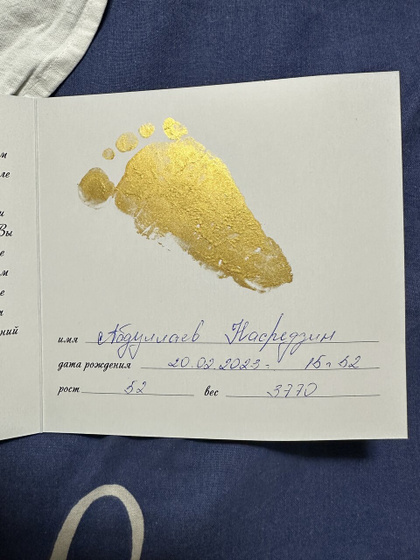 м
ле
и
Вы
е
м
е
ний
имя Абдуллаев Насреддин
дата рождения 20.02.2023. 15ч 52
рост 52 вес 3770